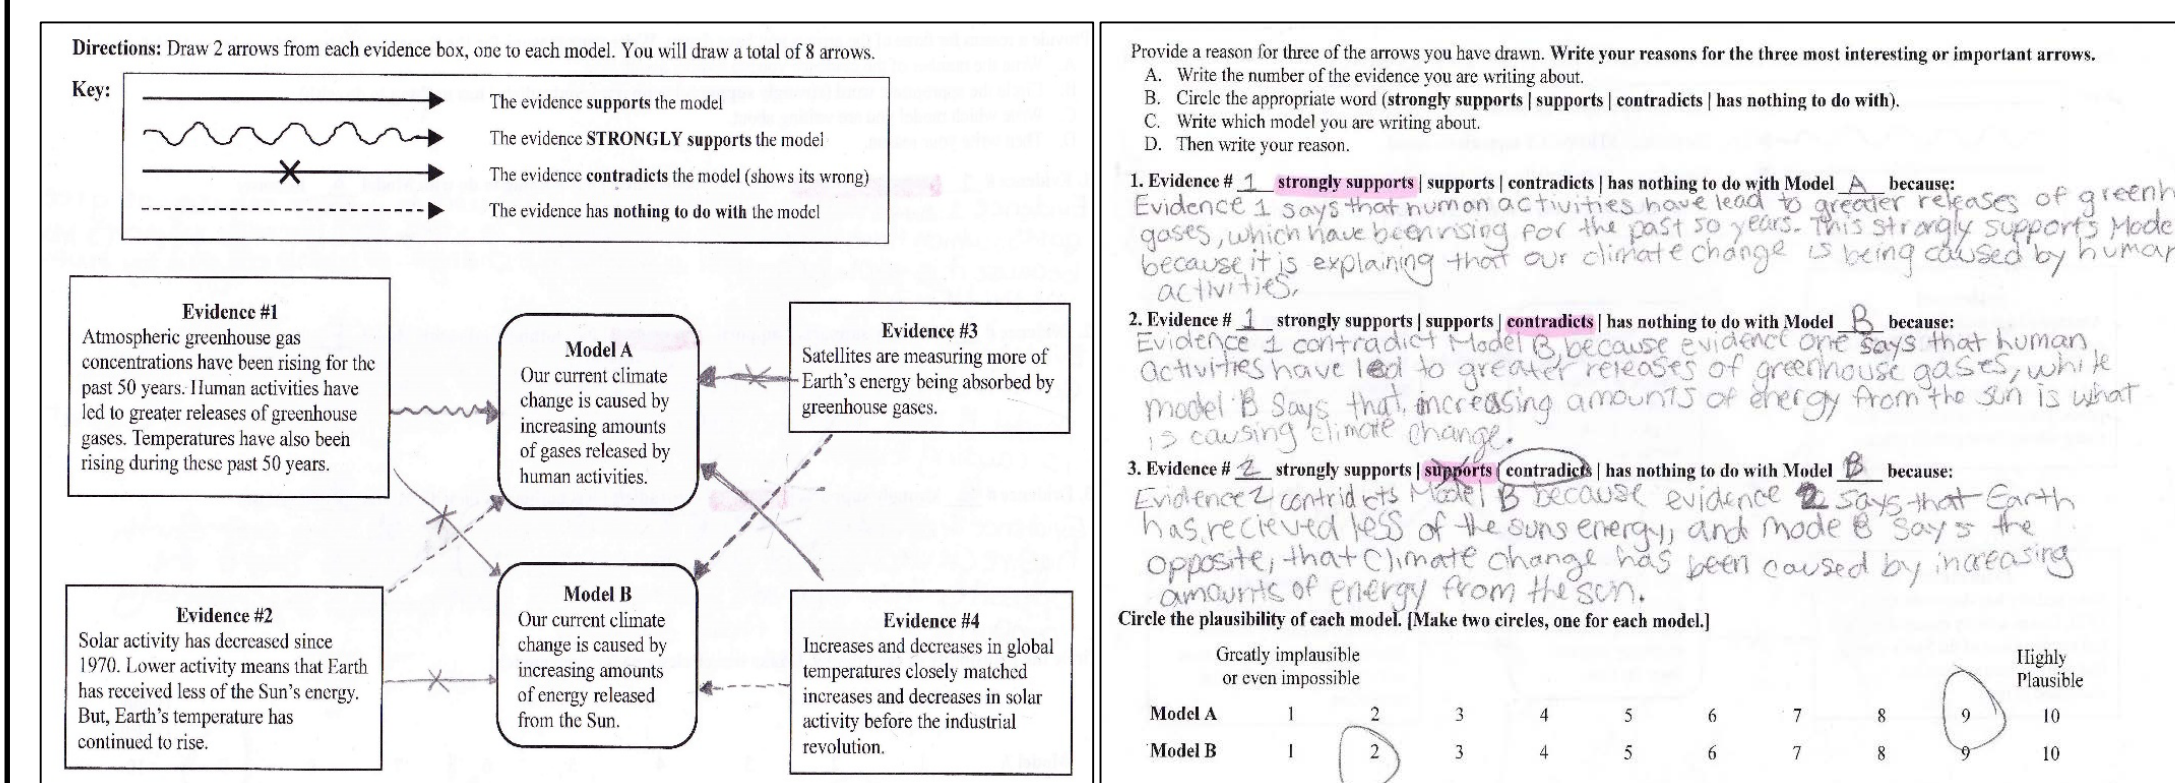 Directions: Draw 2 arrows from each evidence box, one to each model. You will draw a total of 8 arrows.
Key:
The evidence supports the model
The evidence STRONGLY supports the model
The evidence contradicts the model (shows its wrong)
The evidence has nothing to do with the model
Evidence #1
Atmospheric greenhouse gas
concentrations have been rising for the
past 50 years. Human activities have
led to greater releases of greenhouse
gases. Temperatures have also been
rising during these past 50 years.
Model A
Our current climate
change is caused by
increasing amounts
of gases released by
human activities.
Evidence #3
Satellites are measuring more of
Earth's energy being absorbed by
greenhouse gases.
Evidence #2
Solar activity has decreased since
1970. Lower activity means that Earth
has received less of the Sun's energy.
But, Earth's temperature has
continued to rise.
Model B
Our current climate
change is caused by
increasing amounts
of energy released
from the Sun.
Evidence #4
Increases and decreases in global
temperatures closely matched
increases and decreases in solar
activity before the industrial
revolution.
Provide a reason for three of the arrows you have drawn. Write your reasons for the three most interesting or important arrows.
A. Write the number of the evidence you are writing about.
B. Circle the appropriate word (strongly supports | supports | contradicts | has nothing to do with).
C. Write which model you are writing about.
D. Then write your reason.
1. Evidence # 1 strongly supports | supports | contradicts | has nothing to do with Model A because:
Evidence 1 says that human activities have lead to greater releases of greenh
gases, which have been rising for the past 50 years. This strongly supports Mode
because it is explaining that our climate change is being caused by human
activities.
2. Evidence # 1 strongly supports | supports | contradicts | has nothing to do with Model B because:
Evidence 1 contradict Model B, because evidence one says that human
activities have led to greater releases of greenhouse gases, while
model B says that increasing amounts of energy from the sun is what
is causing climate change.
3. Evidence # 2 strongly supports | supports | contradicts | has nothing to do with Model B because:
Evidence 2 contridicts Model B because evidence 2 says that Earth
has recieved less of the suns energy, and mode B says the
opposite, that Climate change has been caused by increasing
amounts of energy from the sun.
Circle the plausibility of each model. [Make two circles, one for each model.]
Greatly implausible
or even impossible
Highly
Plausible
Model A 1 2 3 4 5 6 7 8 9 10
Model B 1 2 3 4 5 6 7 8 9 10